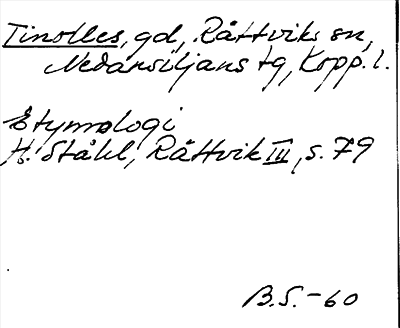 Tinolles, gd, Rättviks sn,
Nedansiljans tg, Kopp. l.
Etymologi
H. Ståhl, Rättvik III, s. 79
B.S. - 60